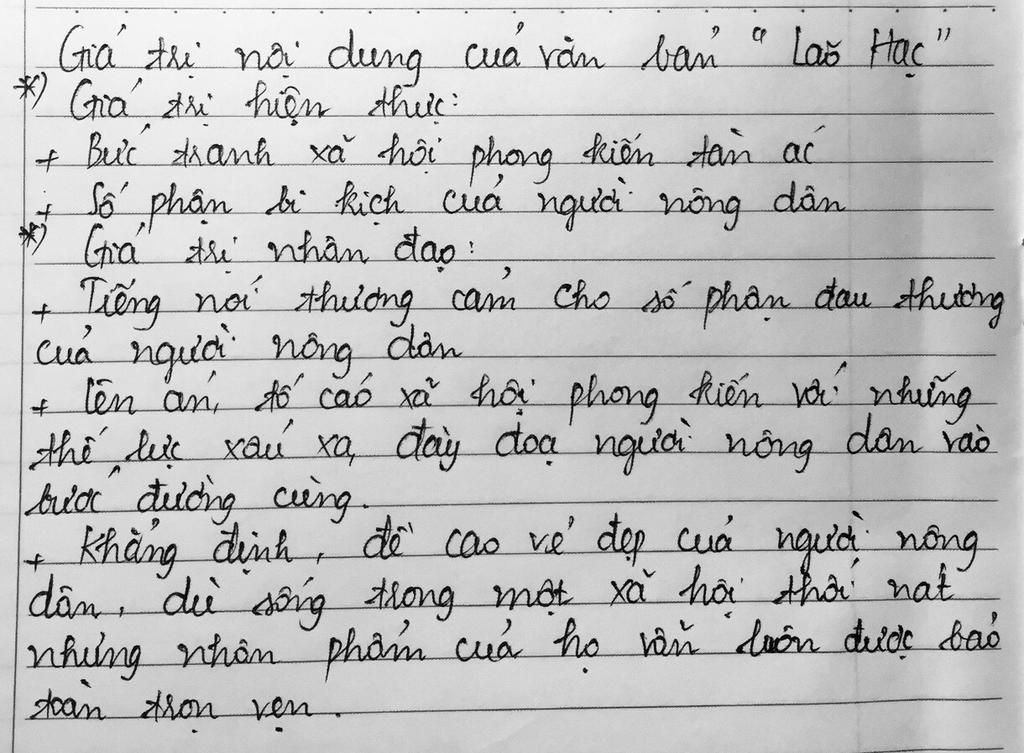 Giá trị nội dung của văn bản "Lão Hạc"
*) Giá trị hiện thực:
+ Bức tranh xã hội phong kiến tàn ác
+ Số phận bi kịch của người nông dân
*) Giá trị nhân đạo:
+ Tiếng nói thương cảm cho số phận đau thương
của người nông dân
+ lên án, tố cáo xã hội phong kiến với những
thế lực xấu xa, đày đoạ người nông dân vào
bước đường cùng.
+ Khẳng định, đề cao vẻ đẹp của người nông
dân, dù sống trong một xã hội thối nát
nhưng nhân phẩm của họ vẫn luôn được bảo
toàn trọn vẹn.